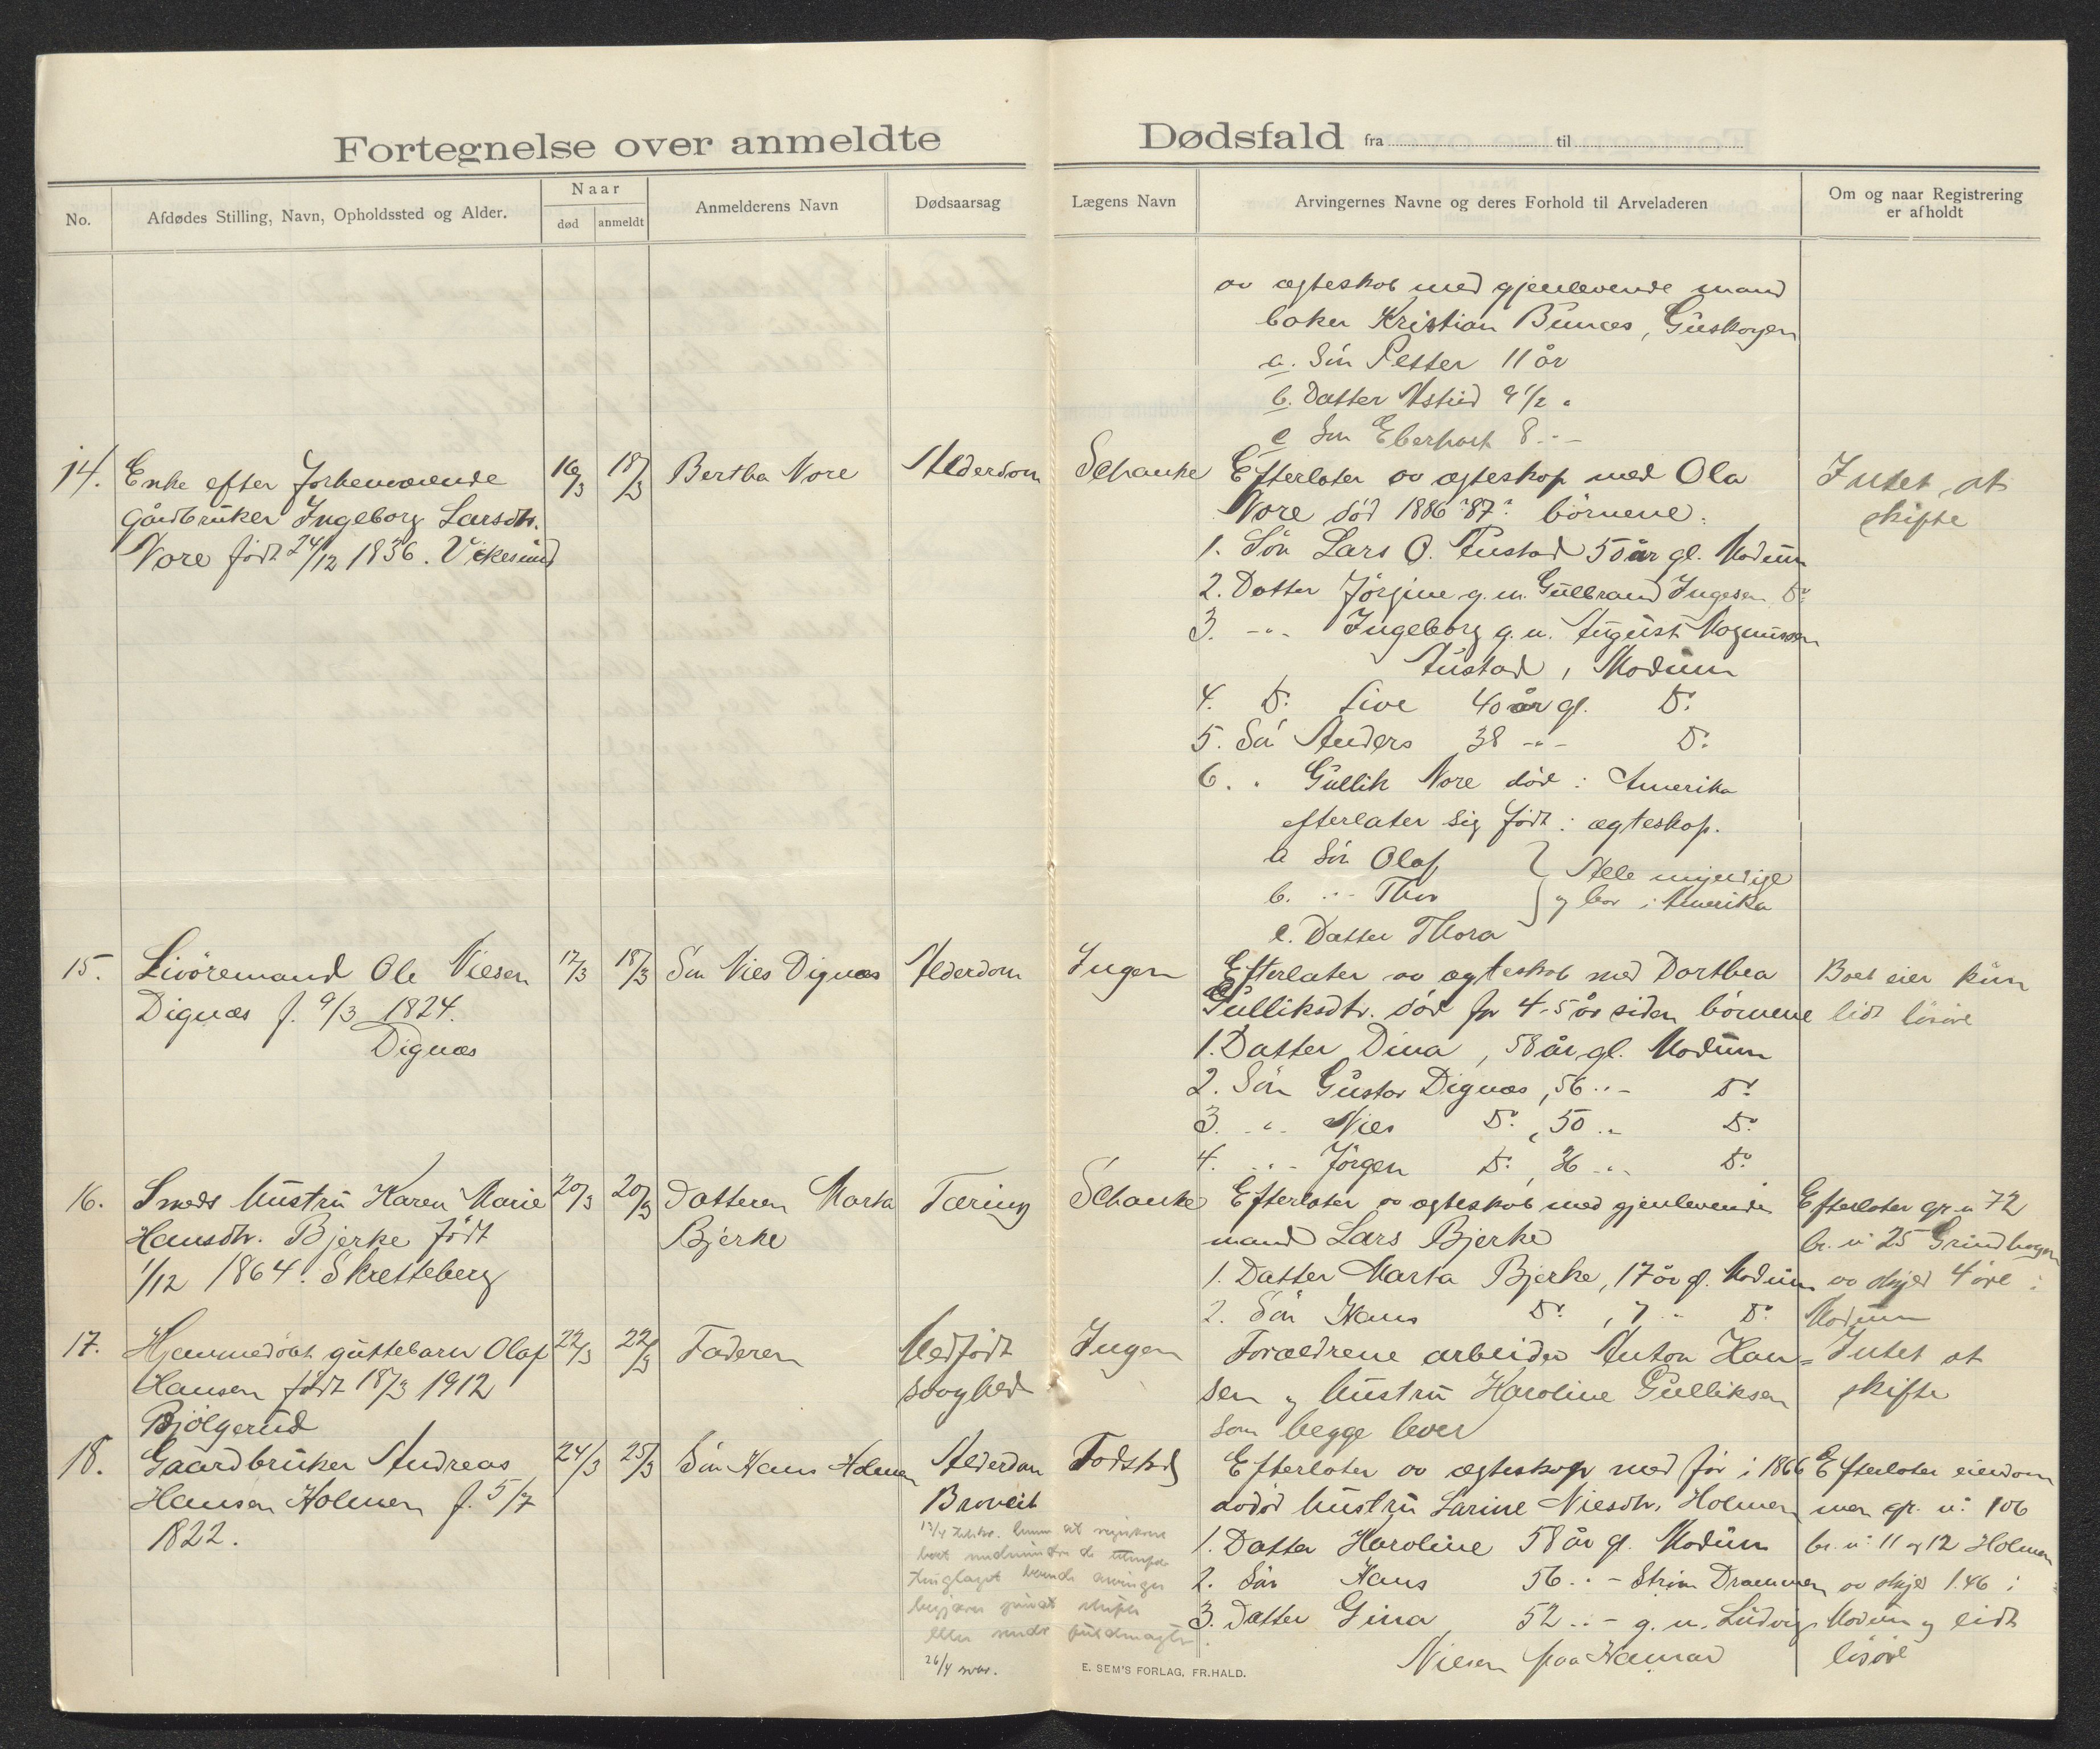 Fortegnelse over anmeldte Dødsfald fra til
No. Afdødes Stilling, Navn, Opholdssted og Alder. Naar død anmeldt Anmelderens Navn Dødsaarsag Lægens Navn Arvingernes Navne og deres Forhold til Arveladeren Om og naar Registrering er afholdt
av ægteskab med gjenlevende mand
baker Kristian Bunæs, Guskogen
a. Søn Petter 11 år
b. Datter Astrid 9 1/2 "
c Søn 8 -"-
14. Enke efter forhenværende
gårdbruker Ingeborg Larsdtr.
Nore født 24/12 1836. Vikesund
16/3 18/3 Bertha Nore Alderdom Schanke
Efterlater av ægteskap med Ola
Nore død 1886 "87" børnene:
1. Søn Lars O. Austad 50 år gl. Modum
2. Datter Jørgine g.m. Gulbrand Ingesen Do.
3. -"- Ingeborg g.m. August Magnussen
Austad, Modum
4. Do. Live 40 år gl. Do.
5. Søn Anders 38 -"- Do.
6. " Gullik Nore død i Amerika
efterlater sig født i ægteskap.
a Søn Olaf
b. -"- Thor
c. Datter Thora
Alle umyndige
og bor i Amerika
Intet at
skifte
15. Livøremand Ole Nilsen
Dignæs f. 9/3 1824.
Dignæs
17/3 18/3 Søn Nils Dignæs Alderdom Ingen
Efterlater av ægteskab med Dorthea
Gulliksdtr. død for 4-5 år siden børnene
1. Datter Dina, 58 år gl. Modum
2. Søn Gustav Dignæs, 56 -"- Do.
3. -"- Nils Do., 50 -"- Do.
4. -"- Jørgen Do., 36 -"- Do.
Boet eier kun
lidt løsøre
16. Smeds hustru Karen Marie
Hansdtr. Bjerke født
1/12 1864. Skretteberg
20/3 20/3 Datteren Marta
Bjerke
Tæring Schanke
Efterlater av ægteskab med gjenlevende
mand Lars Bjerke
1. Datter Marta Bjerke, 17 år gl. Modum
2. Søn Hans Do., 7 -"- Do.
Efterlater gr. n 72
br. n 25 Grindhagen
av skyld 4 øre i
Modum
17. Hjemmedøbt guttebarn Olaf
Hansen født 18/3 1912
Bjølgerud
22/3 22/3 Faderen Medfødt
svaghed
Ingen
Forældrene arbeider Anton Han=
sen og hustru Karoline Gulliksen
som begge lever
Intet at
skifte
18. Gaardbruker Andreas
Hansen Holmen f. 5/7
1822.
24/3 25/3 Søn Hans Holmen Alderdom
Fodstad
Efterlater av ægteskap med før i 1866
avdød hustru Larine Nilsdtr. Holmen
1. Datter Karoline 58 år gl. Modum
2. Søn Hans 56 -"- Strøm Drammen
3. Datter Gina 52 -"- g.m. Ludvig
Nilsen paa Hamar
Efterlater eiendom
men gr. n: 106
br. n: 11 og 12 Holmen
av skyld 1.46 i
Modum og lidt
løsøre
begjærer privat skifte
eller sende fuldmagter
26/4 svar.
E. SEM'S FORLAG, FR.HALD.